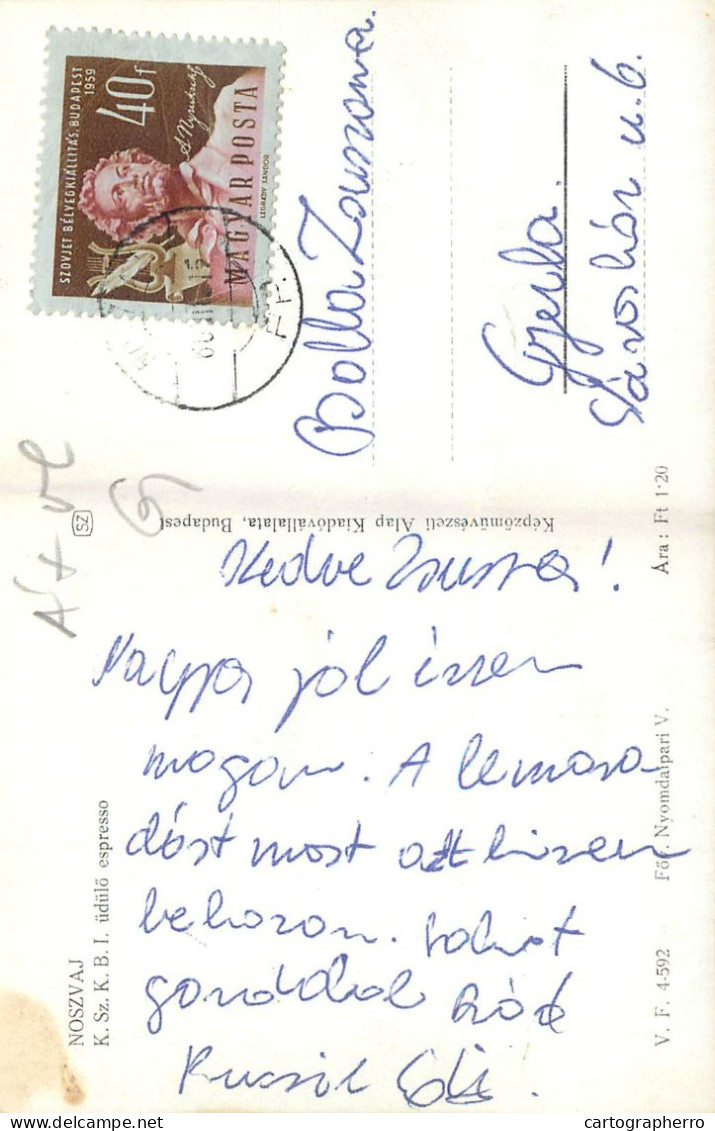 SZOVJET BÉLYEGKIÁLLÍTÁS, BUDAPEST
1959
40f
MAGYAR POSTA
LÉGRÁDY SÁNDOR
Bolla Zsuzsanna.
Gyula.
Városház u. 6.
SZ
Képzőművészeti Alap Kiadóvállalata, Budapest
Ára: Ft 1·20
Kedve Zsuzsa!
Nagyon jól érzem
magam. A lemara
dást most azt hiszem
behozom. Sokat
gondolok rád
Puszil Edit.
NOSZVAJ
K. Sz. K. B. I. üdülő espresso
V. F. 4-592
Főv. Nyomdaipari V.
cartographerro